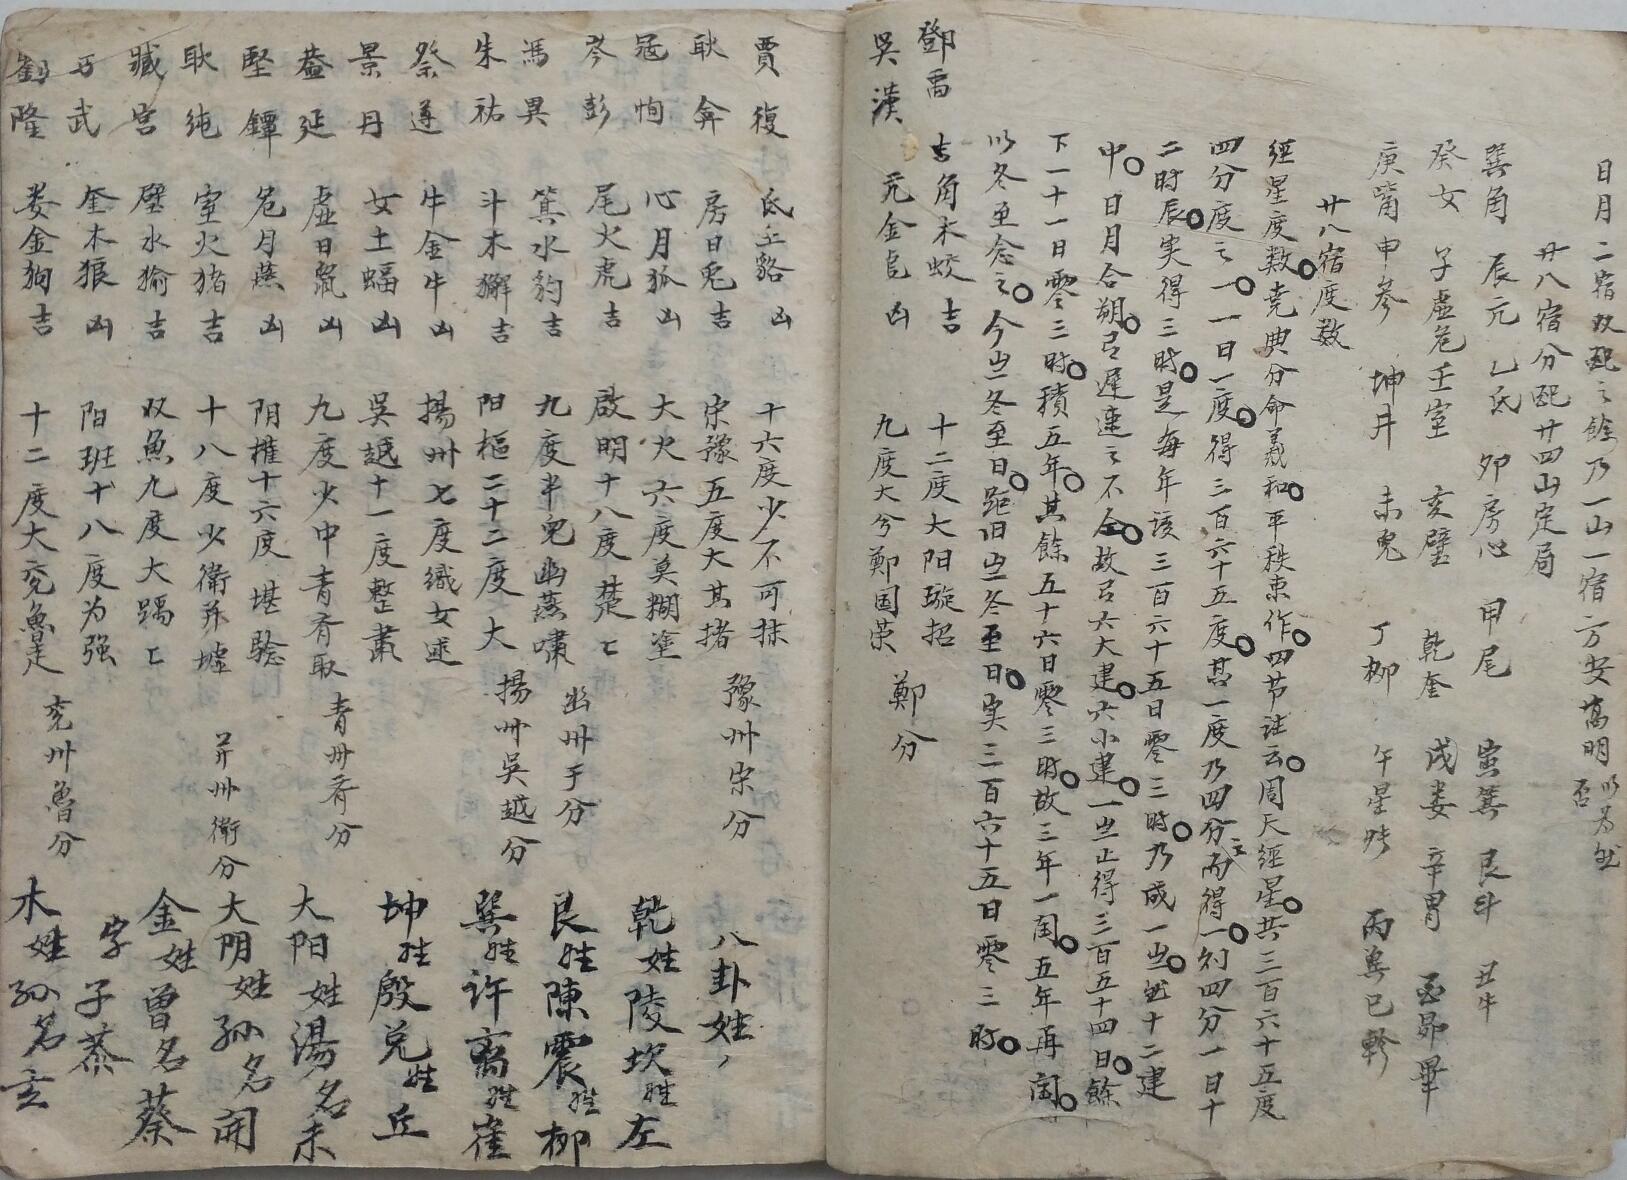 日月二宿双配之餘乃一山一宿方安萬明以为訛否
廿八宿分配廿四山定局
巽角 辰亢 乙氐 卯房心 甲尾 寅箕 艮斗 丑牛
癸女 子虛危 壬室 亥壁 乾奎 戌婁 辛胃 酉昴畢
庚嘴 申參 坤井 未鬼 丁柳 午星 丙 巳軫
廿八宿度数
經星度数堯典分命羲和平秩東作四节註云周天經星共三百六十五度
四分度之一一日一度得三百六十五度甚一度乃四分而得之一则四分一日十
二时辰实得三时是每年该三百六十五日零三时乃成一岁 十二建
中日月合朔 遲速之不 故 六大建六小建一 止得三百五十四日餘
下一十一日零三时積五年其餘五十六日零三时故三年一闰五年再闰
以冬至念之今 冬至日距旧 冬至日实三百六十五日零三时
鄧禹 吉角木蛟 吉 十二度大阳璇招
吳漢 亢金 凶 九度大兮鄭国荣 鄭分
賈復 氐土貉 凶 十六度少不可抹
耿弇 房日兎 吉 宋豫五度大其 豫州宋分
寇恂 心月狐 凶 大火六度莫糊塗
岑彭 尾火虎 吉 啟明十八度楚
馮異 箕水豹 吉 九度半兒幽燕嘯 幽州 分
朱祐 斗木獬 吉 阳樞二十二度大 揚州吳越分
祭遵 牛金牛 凶 揚州七度織女
景丹 女土蝠 凶 吳越十一度整肅
蓋延 虛日鼠 凶 九度少中青齐取 青州齐分
堅鐔 危月燕 凶 阴權十六度堪騐
耿純 室火猪 吉 十八度少衛并墟 并州衛分
臧宮 壁水貐 吉 双魚九度大
马武 奎木狼 凶 阳班十八度为强
劉隆 娄金狗 吉 十二度大兗魯走 兗州魯分
八卦姓
乾姓陵 坎姓左
艮姓陳 震姓柳
巽姓許 离姓崔
坤姓殷 兑姓丘
大阳姓湯名未
大阴姓孙名開
金姓曾名蔡
字子恭
木姓孙名玄